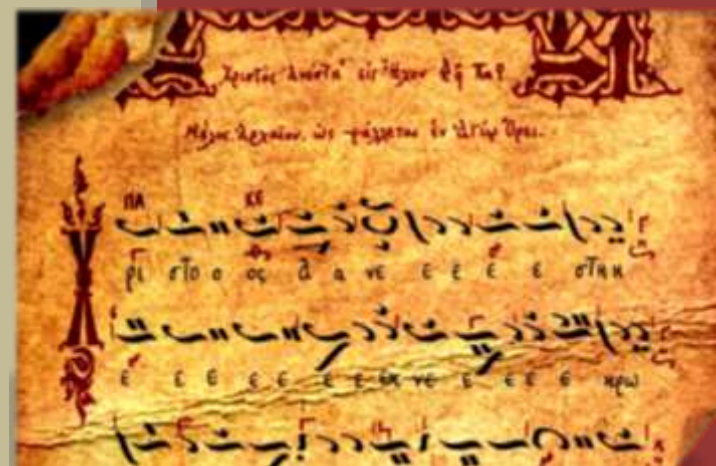 Χριστὸς Ἀνέστη εἰς Ἦχον
Μέλος Ἀρχαῖον, ὡς ψάλλεται ἐν Ἁγίῳ Ὄρει.
ΠΑ ΚΕ
ρι στο ο ος α α νε ε ε ε ε στη η
ε ε ε ε ε ε ε εκ νε ε ε ε ε κρω